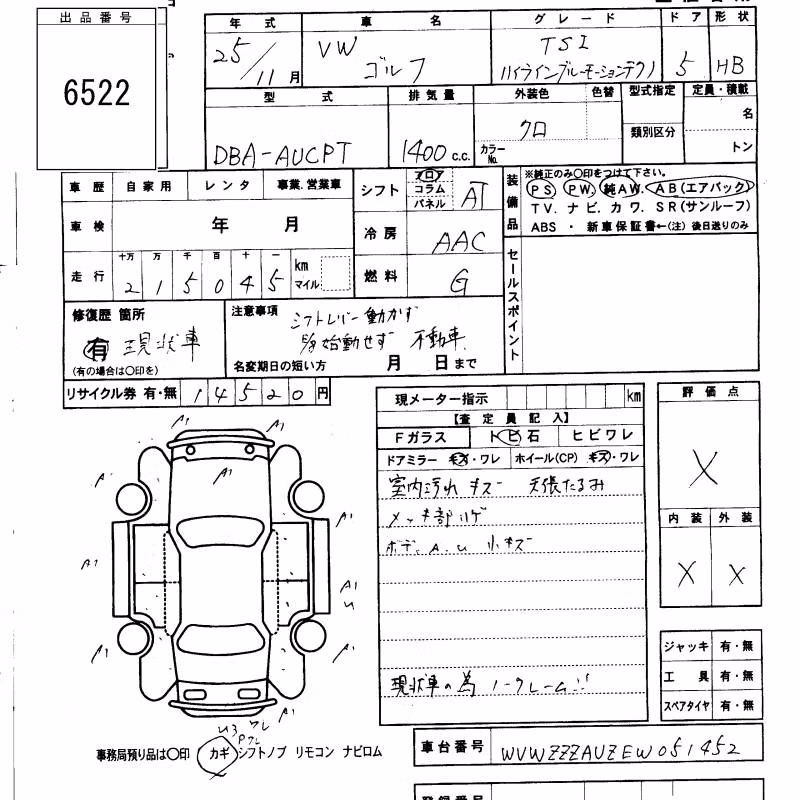 出品番号
6522
年式 車名 グレード ドア 形状
25/11月 VW ゴルフ TSI ハイラインブルーモーションテクノ 5 HB
型式 排気量 外装色 色替 型式指定 定員・積載
DBA-AUCPT 1400c.c. クロ カラーNo. 類別区分 名 トン
車歴 自家用 レンタ 事業.営業車
シフト フロア コラム パネル AT
車検 年 月
冷房 AAC
走行 十万 万 千 百 十 一 km マイル
215045
燃料 G
装備品 ※純正のみ〇印をつけて下さい。
PS PW 純AW. AB(エアバック)
TV. ナビ. カワ. SR(サンルーフ)
ABS ・ 新車保証書←(注) 後日送りのみ
セールスポイント
修復歴 箇所
有 現状車
(有の場合は〇印を)
注意事項 シフトレバー動かず
始動せず 不動車
名変期日の短い方 月 日まで
リサイクル券 有・無 14520円
現メーター指示 km
【査定員記入】
Fガラス トビ石 ヒビワレ
ドアミラー キズ・ワレ ホイール(CP) キズ・ワレ
室内汚れ キズ 天張たるみ
メッキ部ハゲ
ボディ A. U 小キズ
現状車の為 ノークレーム
評価点
X
内装 外装
X X
ジャッキ 有・無
工具 有・無
スペアタイヤ 有・無
A1
A1
A1
A1
A1
A1
A1
A1
U
A1
A1
A1
U3 ワレ
Pワレ
事務局預り品は〇印 カギ シフトノブ リモコン ナビロム
車台番号 WVWZZZAUZEW051452